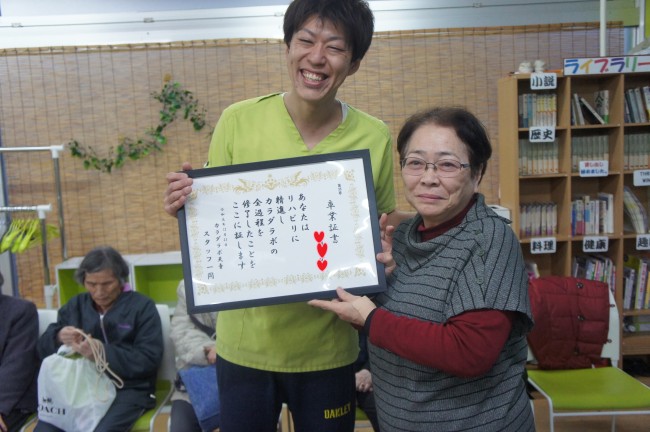 ライブラリー
小説
歴史
料理
健康
卒業証書
あなたは
リハビリに
精進し
カラダラボの
全過程を
修了したことを
ここに証します
スタッフ一同
OAKLEY
COACH